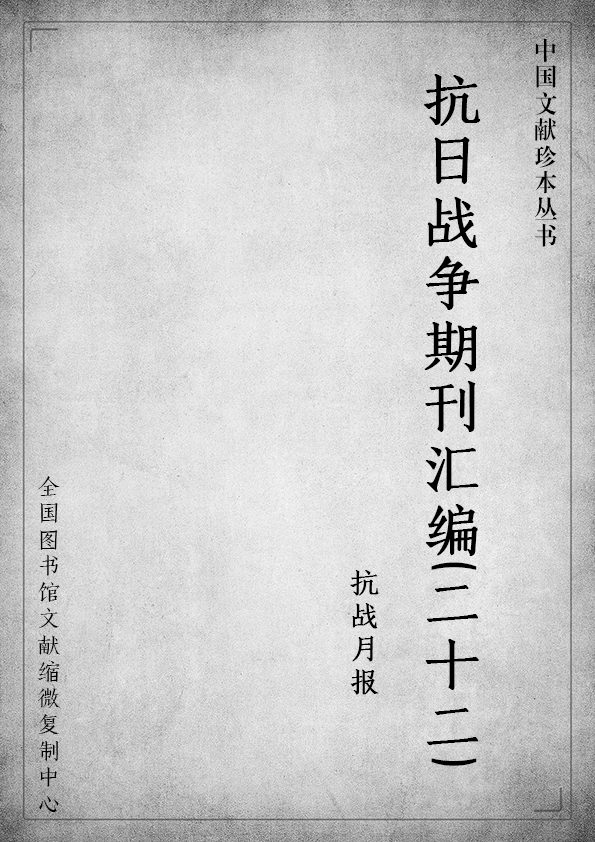 中国文献珍本丛书
抗日战争期刊汇编(二十二)
抗战月报
全国图书馆文献缩微复制中心